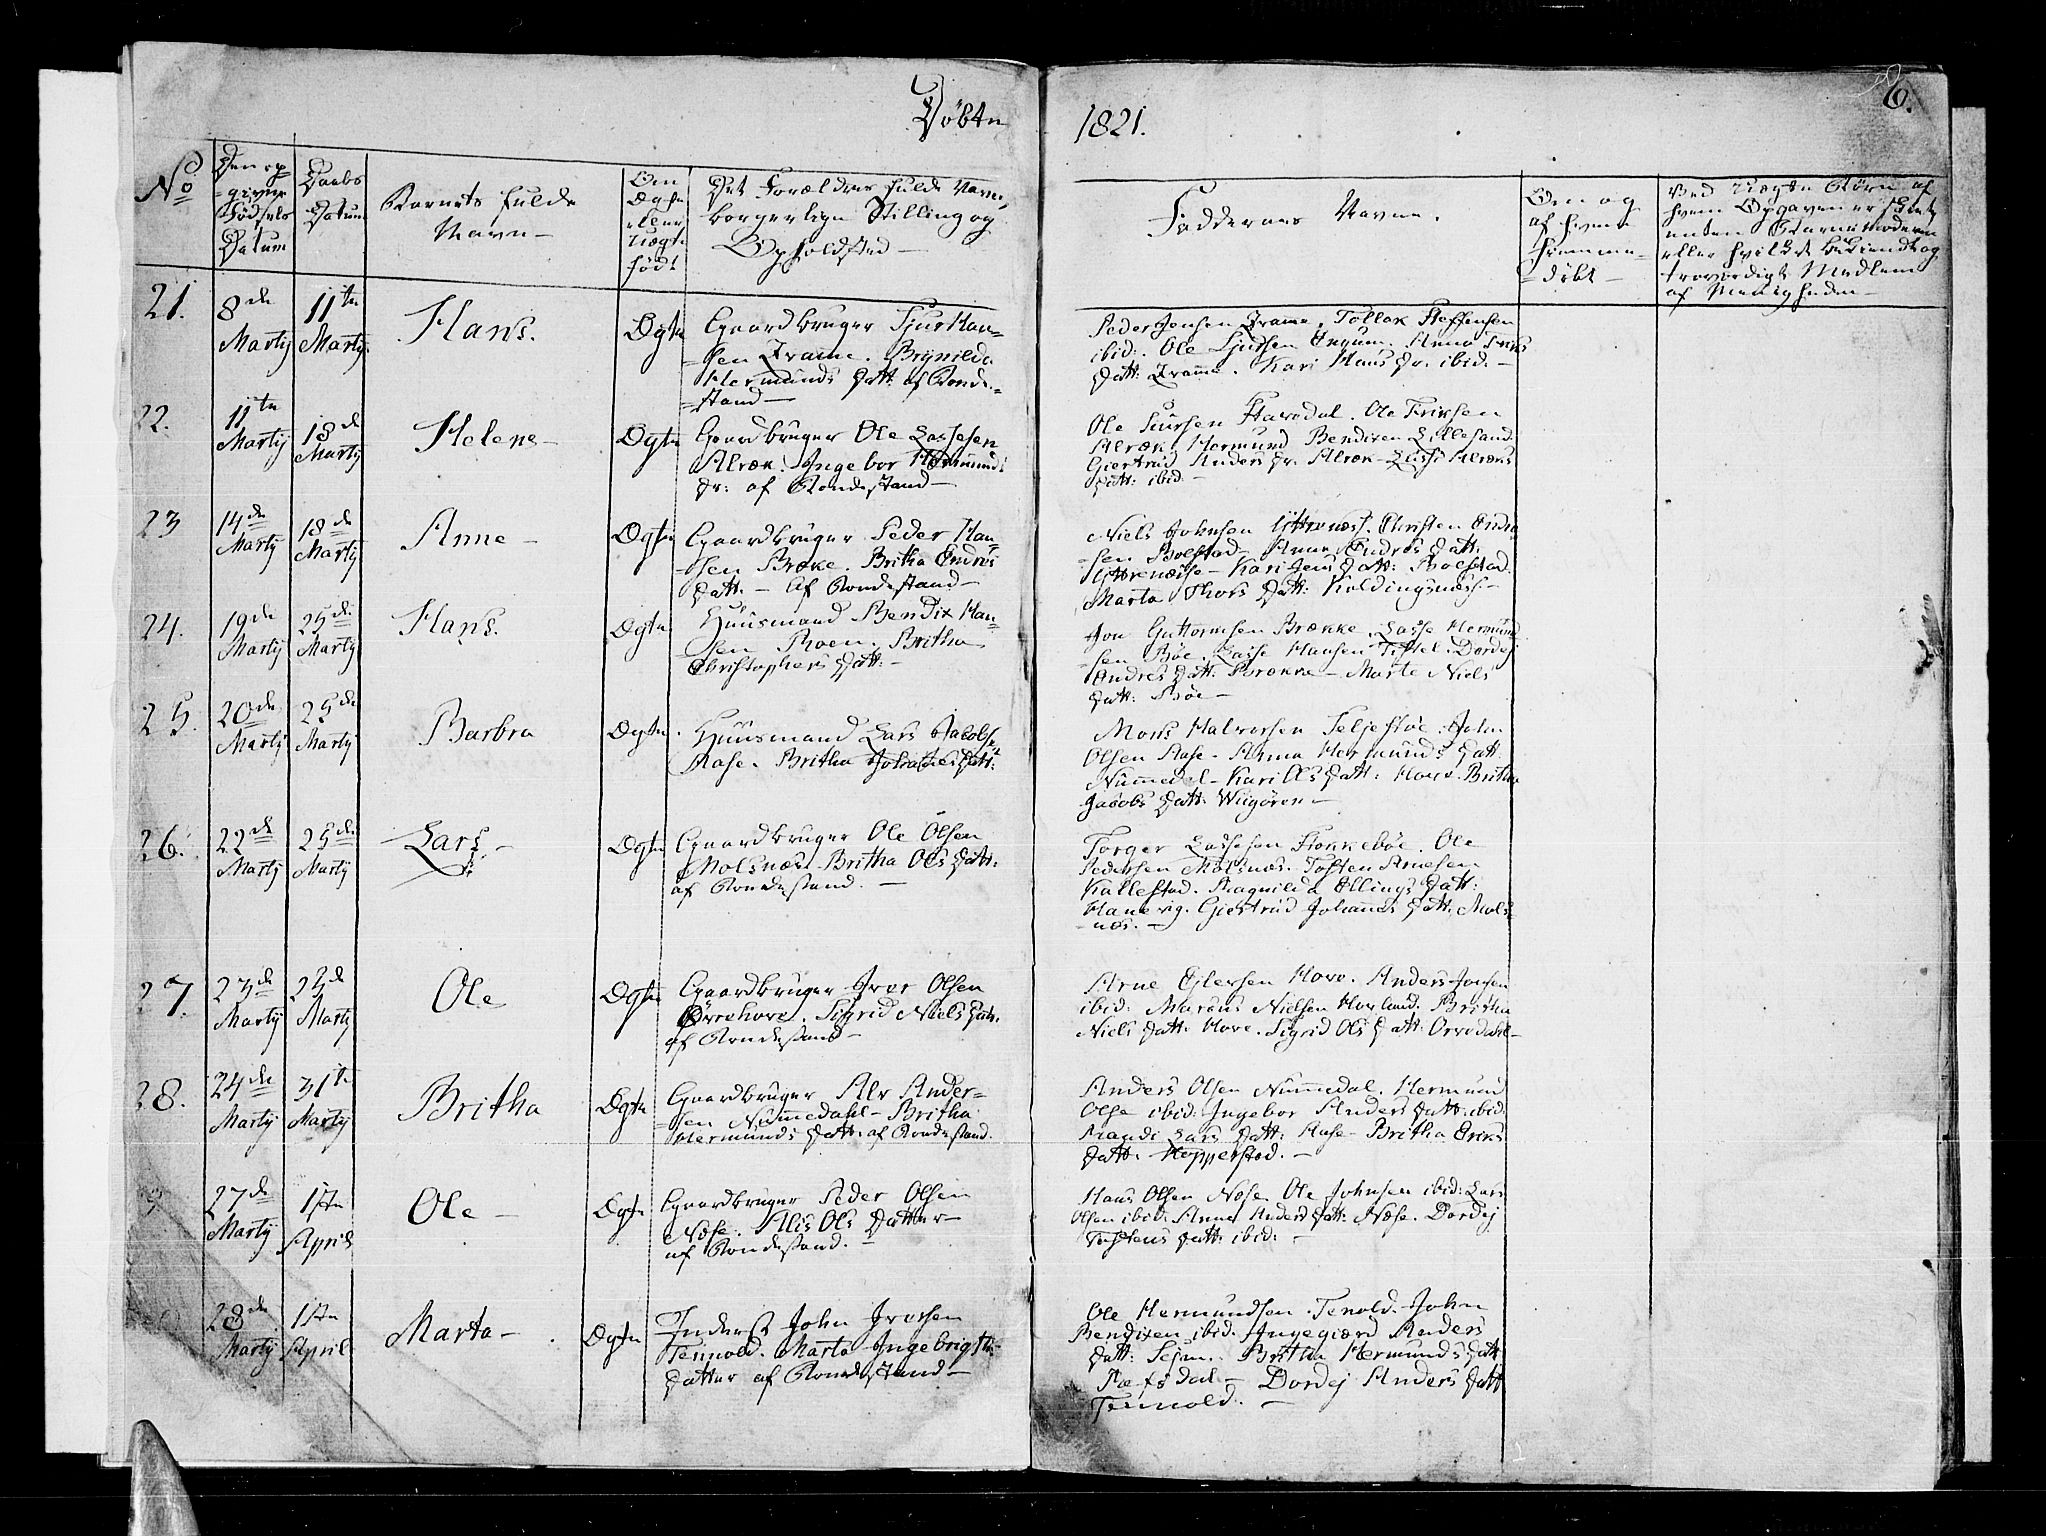 Døbte
1821.
6.
No
Den op-
=givne
Fødsels
Datum
Daabs
Datum
Barnets fulde
Navn –
Om
Ægte
eller
Uægte
født
Det Forældres fulde Navne,
borgerlige Stilling og
Opholdsted –
Faddernes Navne.
Om og
af hvem
hiemme-
=døbt –
Ved Uægte Børn af
hvem Opgaven er skeet,
enten Barnemoderen
eller hvilke bekiendte og
troværdige Medlem
af Menigheden –
21.
8de
Martÿ
11te
Martÿ.
Hans.
Ægte
Gaardbruger Sjur Han-
=sen Framme. Brynilda
Hermunds Datt: af Bonde-
=stand –
Peder Jensen Framme. Tollak Steffensen
ibid:. Ole Sjursen Ungum. Anna
Datt: Framme. Kari Hans Dr. ibid. –
22.
11te
Martÿ
18de
Martÿ
Helene –
Ægte
Gaardbruger Ole Lassesen
Alræk. Ingebor Hermunds
Dr: af Bondestand –
Ole Siursen Faredal. Ole Eriksen
Alræk. Hermund Bendixen Lillesand.
Giertrud Anders Dr. Alræk –
Datt: ibid. –
23
14de
Martÿ
18de
Martÿ
Anne –
Ægte
Gaardbruger Peder Han-
=sen Bræke. Britha Endres
Datt. – af Bondestand –
Niels Johnsen Yttrenæss. Christen Endre-
=sen Bolstad – Anne Endres Datt:
Yttrenæsse – Kari Jens Datt: Bolstad.
Marta Thors Datt: Holdingsness. –
24.
19de
Martÿ
25de
Martÿ
Hans.
Ægte
Huusmand Bendix Han-
=sen Boen. Britha
Christophers Datt: –
Jon Guttormsen Brække. Lasse Hermund-
=sen Bøe. Lasse Hansen Tistel. Dordej
Endres Datt: Brække – Marte Niels
Datt: Bøe –
25.
20de
Martÿ
25de
Martÿ
Barbra
Ægte.
Huusmand Lars Jacobs.
Aase. Britha Johannes Datt:
Mons Halvorsen Feljestøe. John
Olsen Aase – Anna Hermunds Datt
Nummedal – Kari Ols Datt: Hove. Britha
Jacobs Datt: Wiigøren –
26.
22de
Martÿ
25de
Martÿ
Lars. –
Ægte
Gaardbruger Ole Olsen
Molsnæs. Britha Ols Datt:
af Bondestand. –
Torger Lassesen Stokkebøe. Ole
Pedersen Molsnæs. Tosten Arnesen
Kallestad. Ragnilda Ellings Datt:
Hanevig. Giertrud Johannes Datt: Mols-
=næs. –
27.
23de
Martÿ
25de
Martÿ
Ole
Ægte
Gaardbruger Iver Olsen
Øvrehove. Sigrid Niels Datt.
af Bondestand –
Arne Ejlersen Hove. Anders Jonsen
ibid: Marcus Nielsen Hovland. Britha
Niels Datt: Hove. Sigrid Ols Datt: Orredahl –
28.
24de
Martÿ
31te
Martÿ
Britha
Ægte
Gaardbruger Alv Ander-
=sen Nummedahl – Britha
Hermunds Datt. af Bondestand.
Anders Olsen Nummedal. Hermund
Olse ibid: Ingebor Anders Datt: ibid:
Randi Lars Datt: Aase – Britha Eriks
Datt: Hopperstad. –
27de
Martÿ
1ste
April
Ole –
Ægte
Gaardbruger Peder Olsen
Næse. Alis Ols Datter –
af Bondestand. –
Hans Olsen Nese. Ole Johnsen ibid: Lars
Olsen ibid. Anna Anders Datt: Næse. Dordej
Tostens Datt: ibid: –
28de
Martÿ
1ste
April
Marta –
Ægte
Inderst John Iversen
Tennold. Marta Ingebrigts-
Datter af Bondestand –
Ole Hermundsen Tenold. John
Bendixen ibid. Ingegierd Anders
Datt: Sejm. – Britha Hermunds Datt
Refsdal – Dordej Anders Datt
Tennold. –